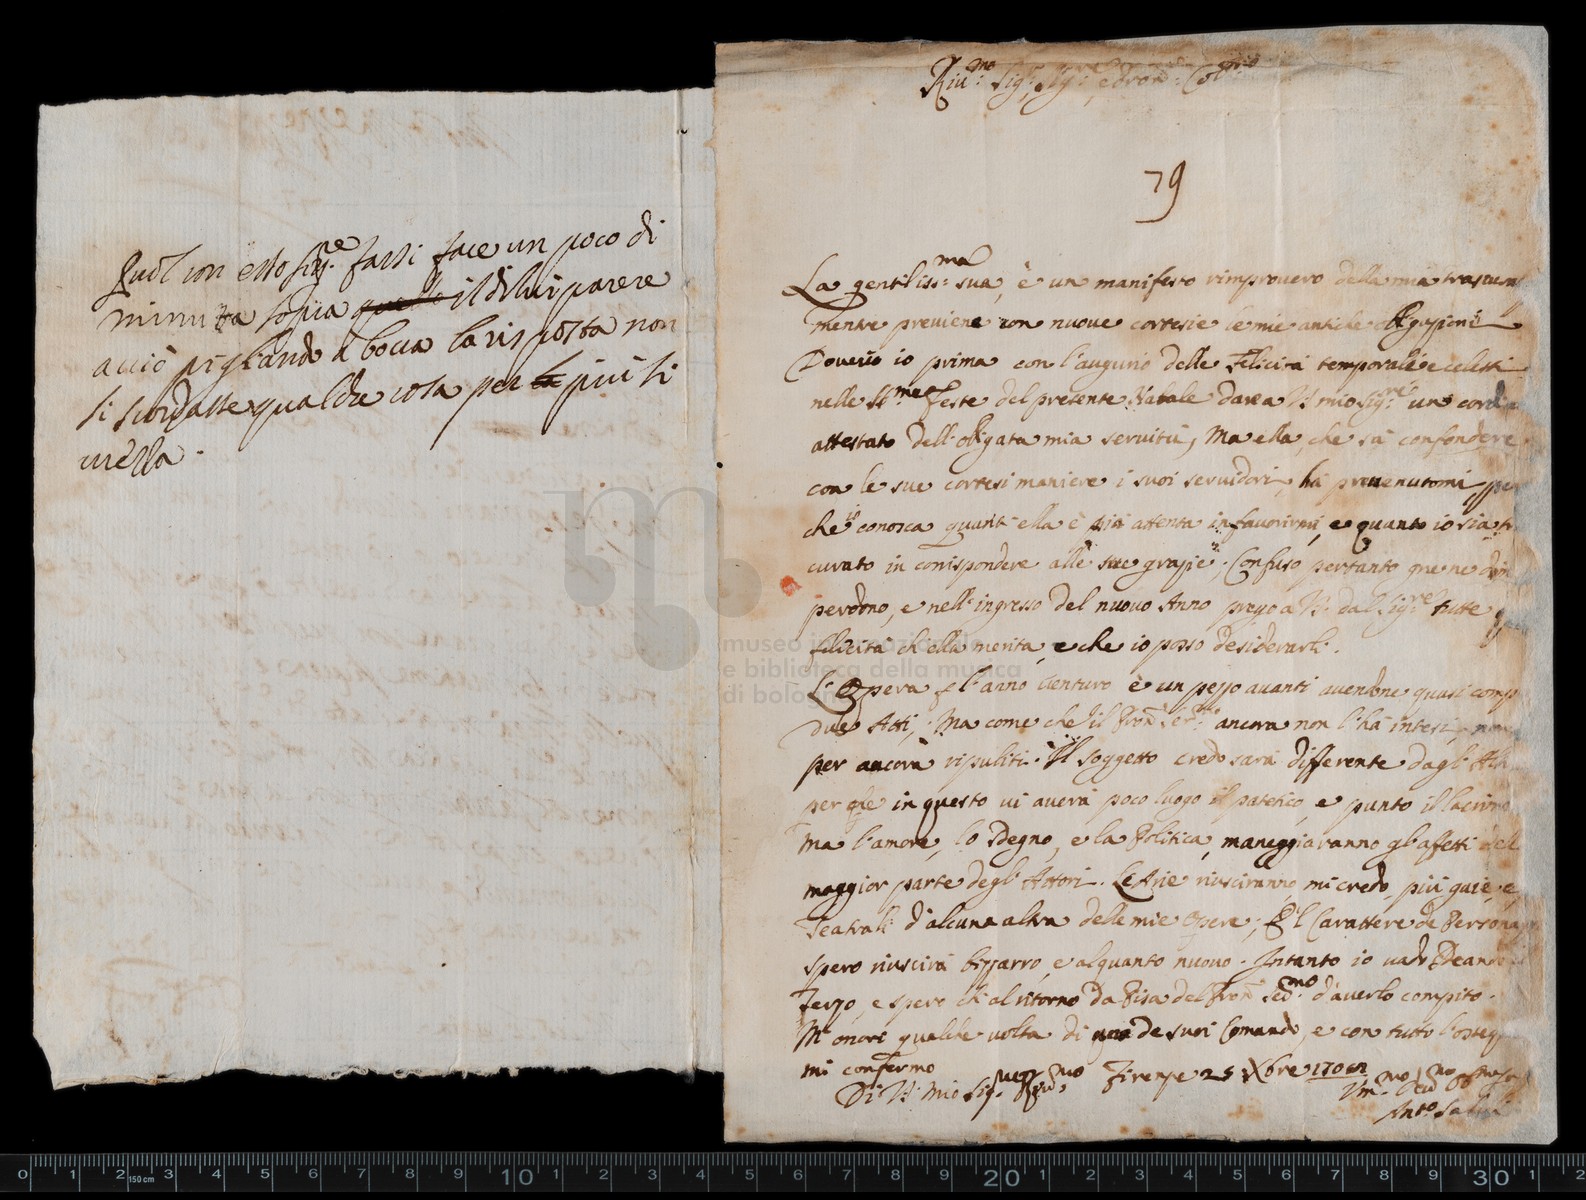 Quol con esso Sig.re farsi face un poco di
minuta sopra quello il di lui parere
acciò pigliando a bocca la risposta non
si scordasse qualche cosa per la più si
mella.
Riv.mo Sig.r Sig.r e Pron. Col.mo
79
La gentiliss.ma sua, è un manifesto rimprovero della mia
mentre previene con nuove cortesie le mie antiche obligazioni
Dovevo io prima con l'augurio delle Felicità temporali e celesti
nelle SS.me Feste del presente Natale dare a V. mio Sig.re un
attestato dell'obligata mia servitù, Ma ella, che sà confondere
con le sue cortesi maniere i suoi servidori, hà prevenutomi per
che io conosca quant'ella è più attenta in favorirmi, e quanto io sia
curato in corrispondere alle sue grazie; Confuso pertanto gne ne
perdono, e nell'ingresso del nuovo Anno prego a V. dal Sig.re tutte
felicità ch'ella merita, e che io posso desiderarli.
L'Opera p l'anno venturo è un pezzo avanti avendone quasi
due Atti, Ma come che il Pron. Ser.mo ancora non l'hà intesi,
per ancora ripuliti. Il soggetto credo sarà differente dagl'
per che in questo vi averà poco luogo il patetico, e punto il
ma l'amore, lo sdegno, e la Politica, maneggiaranno gl'affetti
maggior parte degl'Attori. Le Arie riusciranno, mi credo, più gaie, e
Teatrali d'alcuna altra delle mie Opere; E 'l Carattere de
spero riuscirà bizzarro, e alquanto nuovo. Intanto io vado
Terzo, e spero ch'al ritorno da Pisa del Pron. Ser.mo d'averlo compito.
M'onori qualche volta di uno de suoi Comandi, e con tutto
mi confermo
Di V. mio Sig.
Firenze 25 Xbre
museo internazionale
e biblioteca della musica
di bologna
0 1 2 3 4 5 6 7 8 9 10 1 2 3 4 5 6 7 8 9 20 1 2 3 4 5 6 7 8 9 30 1 2
150 cm